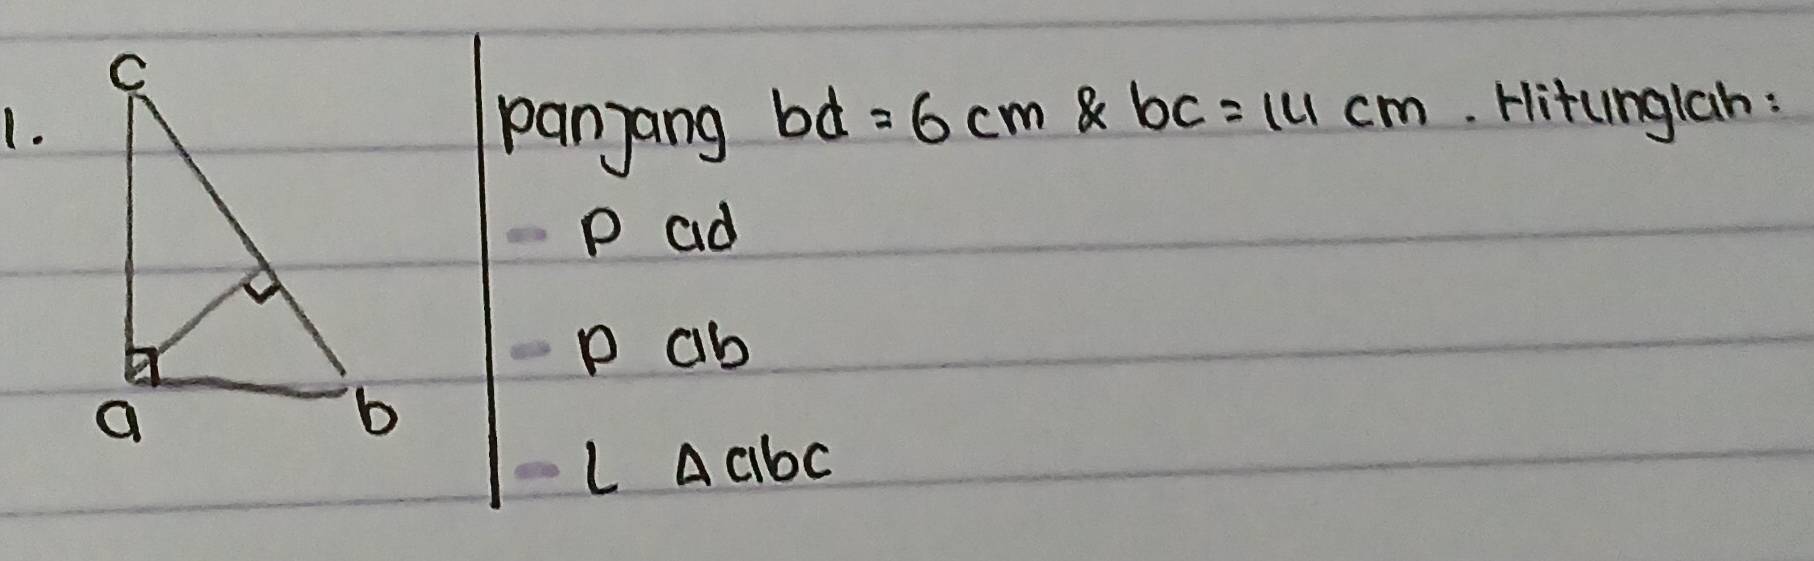 1.
c
a
b
panjang bd = 6 cm & bc = 14 cm . Hitunglah :
- P ad
- P ab
- L Δ abc